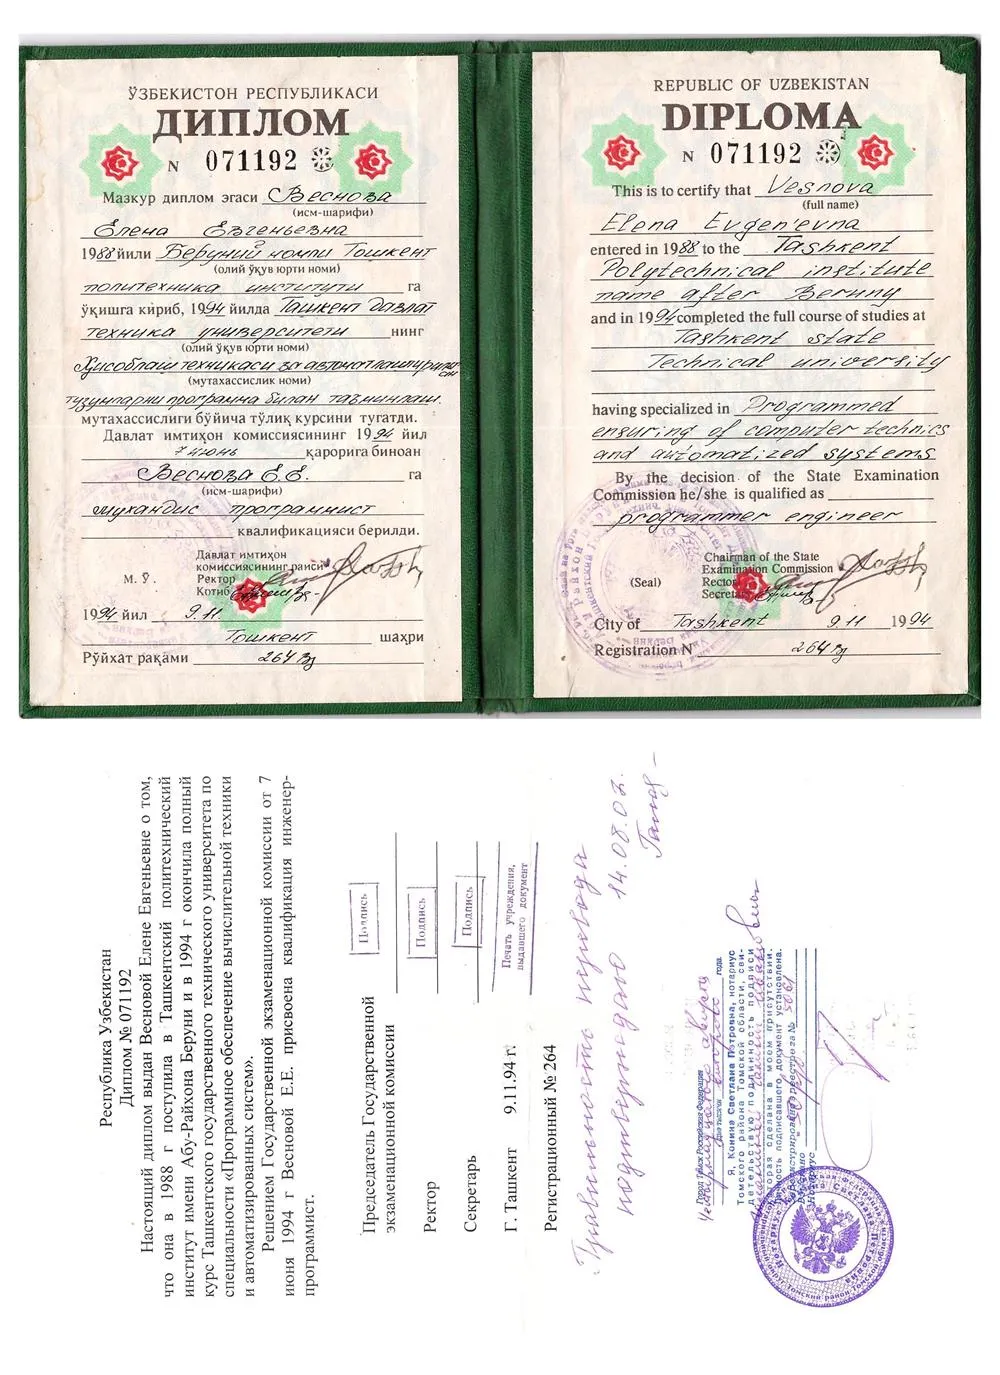 ЎЗБЕКИСТОН РЕСПУБЛИКАСИ
ДИПЛОМ
N 071192
Мазкур диплом эгаси Веснова
(исм-шарифи)
Елена Евгеньевна
1988 йили Беруний номли Тошкент
(олий ўқув юрти номи)
политехника институти га
ўқишга кириб, 1994 йилда Ташкент давлат
техника университети нинг
(олий ўқув юрти номи)
Ҳисоблаш техникаси ва автоматлаштирилган
(мутахассислик номи)
тузумларни программа билан таъминлаш
мутахассислиги бўйича тўлиқ курсини тугатди.
Давлат имтиҳон комиссиясининг 1994 йил
7 июнь қарорига биноан
Веснова Е.Е. га
(исм-шарифи)
мухандис программист
квалификацияси берилди.
Давлат имтиҳон
комиссиясининг раиси
М. Ў. Ректор
Котиб
1994 йил 9.11
Тошкент шаҳри
Рўйхат рақами 264
REPUBLIC OF UZBEKISTAN
DIPLOMA
N 071192
This is to certify that Vesnova
(full name)
Elena Evgen'evna
entered in 1988 to the Tashkent
Polytechnical institute
name after Beruny
and in 1994 completed the full course of studies at
Tashkent state
Technical university
having specialized in Programmed
ensuring of computer technics
and automatized systems
By the decision of the State Examination
Commission he/she is qualified as
programmer engineer
Chairman of the State
Examination Commission
(Seal) Rector
Secretary
City of Tashkent 9.11 1994
Registration N 264
Республика Узбекистан
Диплом № 071192
Настоящий диплом выдан Весновой Елене Евгеньевне о том,
что она в 1988 г поступила в Ташкентский политехнический
институт имени Абу-Райхона Беруни и в 1994 г окончила полный
курс Ташкентского государственного технического университета по
специальности «Программное обеспечение вычислительной техники
и автоматизированных систем».
Решением Государственной экзаменационной комиссии от 7
июня 1994 г Весновой Е.Е. присвоена квалификация инженер-
программист.
Председатель Государственной
экзаменационной комиссии Подпись
Ректор Подпись
Секретарь Подпись
Г. Ташкент 9.11.94 г.
Печать учреждения,
выдавшего документ
Регистрационный № 264
Правильность перевода
подтверждаю 14.08.02.
Город Томск Российская Федерация
Четырнадцатого августа
две тысячи второго года
Я, Конина Светлана Петровна, нотариус
Томского района Томской области, сви-
детельствую подлинность подписи
которая сделана в моем присутствии.
Личность подписавшего документ установлена.
Зарегистрировано в реестре за №
Взыскано
Нотариус